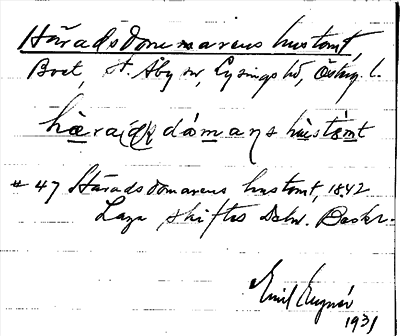 Häradsdomarens hustomt,
Boet, St. Åby sn, Lysings hd, Östug. l.
hæra(d)sdómans hústómt
# 47 Häradsdomarens hustomt, 1842
Laga skiftes Delw. Beskr.
Emil
1931